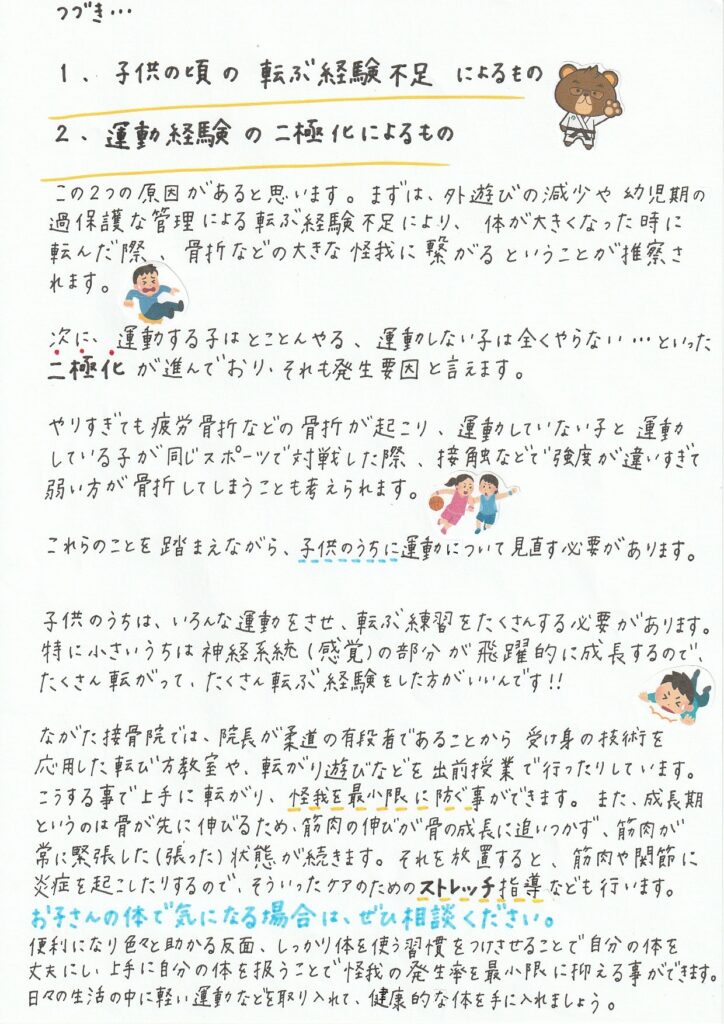 つづき…
1、子供の頃の 転ぶ経験不足 によるもの
2、運動経験の二極化によるもの
この2つの原因があると思います。まずは、外遊びの減少や幼児期の
過保護な管理による転ぶ経験不足により、体が大きくなった時に
転んだ際、骨折などの大きな怪我に繋がるということが推察さ
れます。
次に、運動する子はとことんやる、運動しない子は全くやらない…といった
二極化が進んでおり、それも発生要因と言えます。
やりすぎても疲労骨折などの骨折が起こり、運動していない子と運動
している子が同じスポーツで対戦した際、接触などで強度が違いすぎて
弱い方が骨折してしまうことも考えられます。
これらのことを踏まえながら、子供のうちに運動について見直す必要があります。
子供のうちは、いろんな運動をさせ、転ぶ練習をたくさんする必要があります。
特に小さいうちは神経系統(感覚)の部分が飛躍的に成長するので、
たくさん転がって、たくさん転ぶ経験をした方がいいんです!!
ながた接骨院では、院長が柔道の有段者であることから受け身の技術を
応用した転び方教室や、転がり遊びなどを出前授業で行ったりしています。
こうする事で上手に転がり、怪我を最小限に防ぐ事ができます。また、成長期
というのは骨が先に伸びるため、筋肉の伸びが骨の成長に追いつかず、筋肉が
常に緊張した(張った)状態が続きます。それを放置すると、筋肉や関節に
炎症を起こしたりするので、そういったケアのためのストレッチ指導なども行います。
お子さんの体で気になる場合は、ぜひ相談ください。
便利になり色々と助かる反面、しっかり体を使う習慣をつけさせることで自分の体を
丈夫にし、上手に自分の体を扱うことで怪我の発生率を最小限に抑える事ができます。
日々の生活の中に軽い運動などを取り入れて、健康的な体を手に入れましょう。